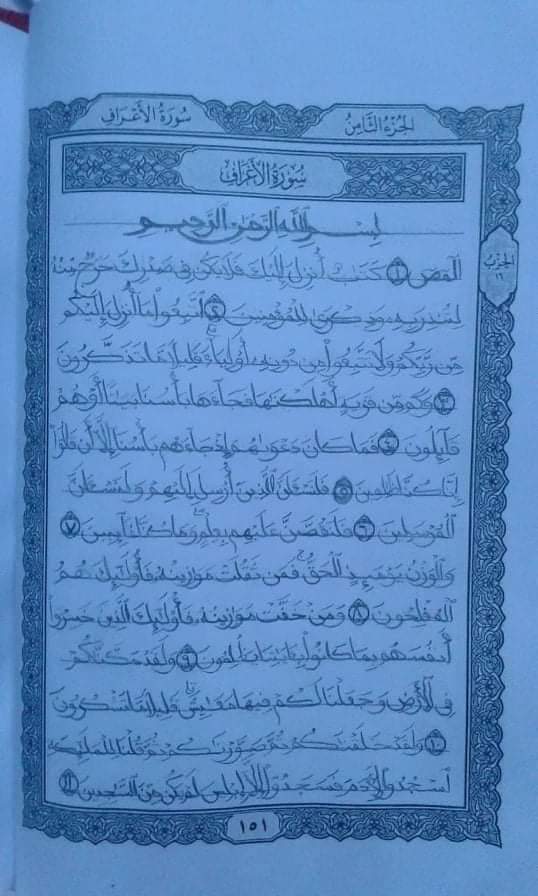 سورة الأعراف
الجزء الثامن
سورة الأعراف
بسم الله الرحمن الرحيم
الحزب
١٦
المص ١ كتب أنزل إليك فلا يكن في صدرك حرج منه
لتنذر به وذكرى للمؤمنين ٢ اتبعوا ما أنزل إليكم
من ربكم ولا تتبعوا من دونه أولياء قليلا ما تذكرون
٣ وكم من قرية أهلكنها فجاءها بأسنا بيتا أو هم
قائلون ٤ فما كان دعوىهم إذ جاءهم بأسنا إلا أن قالوا
إنا كنا ظلمين ٥ فلنسئلن الذين أرسل إليهم ولنسئلن
المرسلين ٦ فلنقصن عليهم بعلم وما كنا غائبين ٧
والوزن يومئذ الحق فمن ثقلت موازينه فأولئك هم
المفلحون ٨ ومن خفت موازينه فأولئك الذين خسروا
أنفسهم بما كانوا بئايتنا يظلمون ٩ ولقد مكنكم
في الأرض وجعلنا لكم فيها معيش قليلا ما تشكرون
١٠ ولقد خلقنكم ثم صورنكم ثم قلنا للملئكة
اسجدوا لأدم فسجدوا إلا إبليس لم يكن من السجدين ١١
١٥١